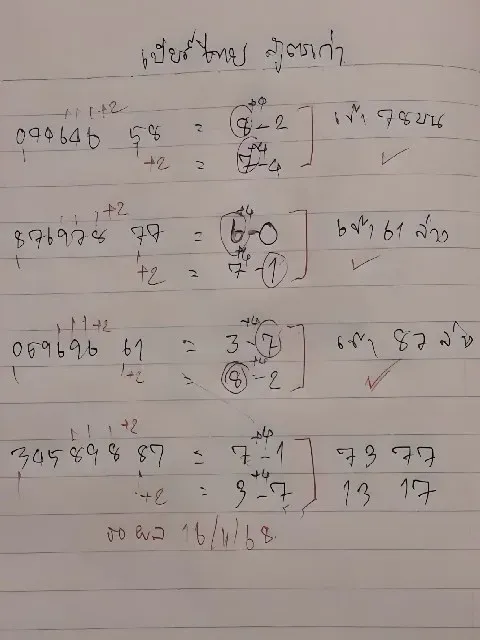 เบียร์ไทย สูตรเก่า
+2 +4
094646 58 = 8-2 เข้า 78 บน
+4
+2 = 7-4 ✓
+2 +4
876978 77 = 6-0 เข้า 61 ล่าง
+4
+2 = 7-1 ✓
+2 +4
059696 61 = 3-7 เข้า 87 ล่าง
+4
+2 = 8-2 ✓
+2 +4
345898 87 = 7-1 73 77
+4
+2 = 3-7 13 17
รอผล 16/11/68